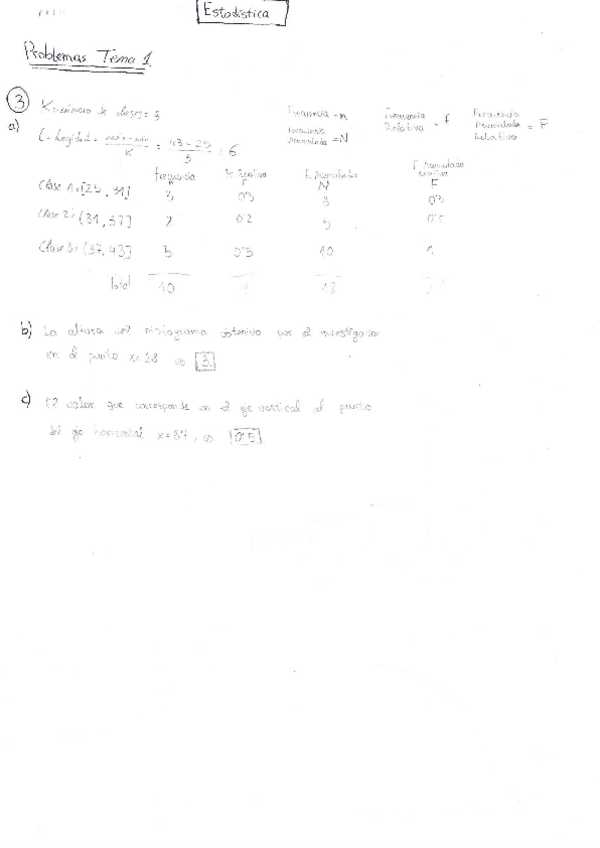 Estadística
Problemas Tema 1.
③ K = número de clases = 3
Frecuencia = n
Frecuencia Relativa = f
Frecuencia Acumulada Relativa = F
Frecuencia Acumulada = N
a) L = longitud = máx - mín / K = 43 - 25 / 3 = 6
Frecuencia n F. Relativa F F. Acumulada N F. Acumulada relativa F
Clase 1 = [25, 31] 3 0'3 3 0'3
Clase 2 = (31, 37] 2 0'2 5 0'5
Clase 3 = (37, 43] 5 0'5 10 1
Total 10 1
b) La altura del histograma obtenido por el investigador
en el punto x = 28 es 3.
c) El valor que corresponde en el eje vertical al punto
del eje horizontal x = 37, es 0'5